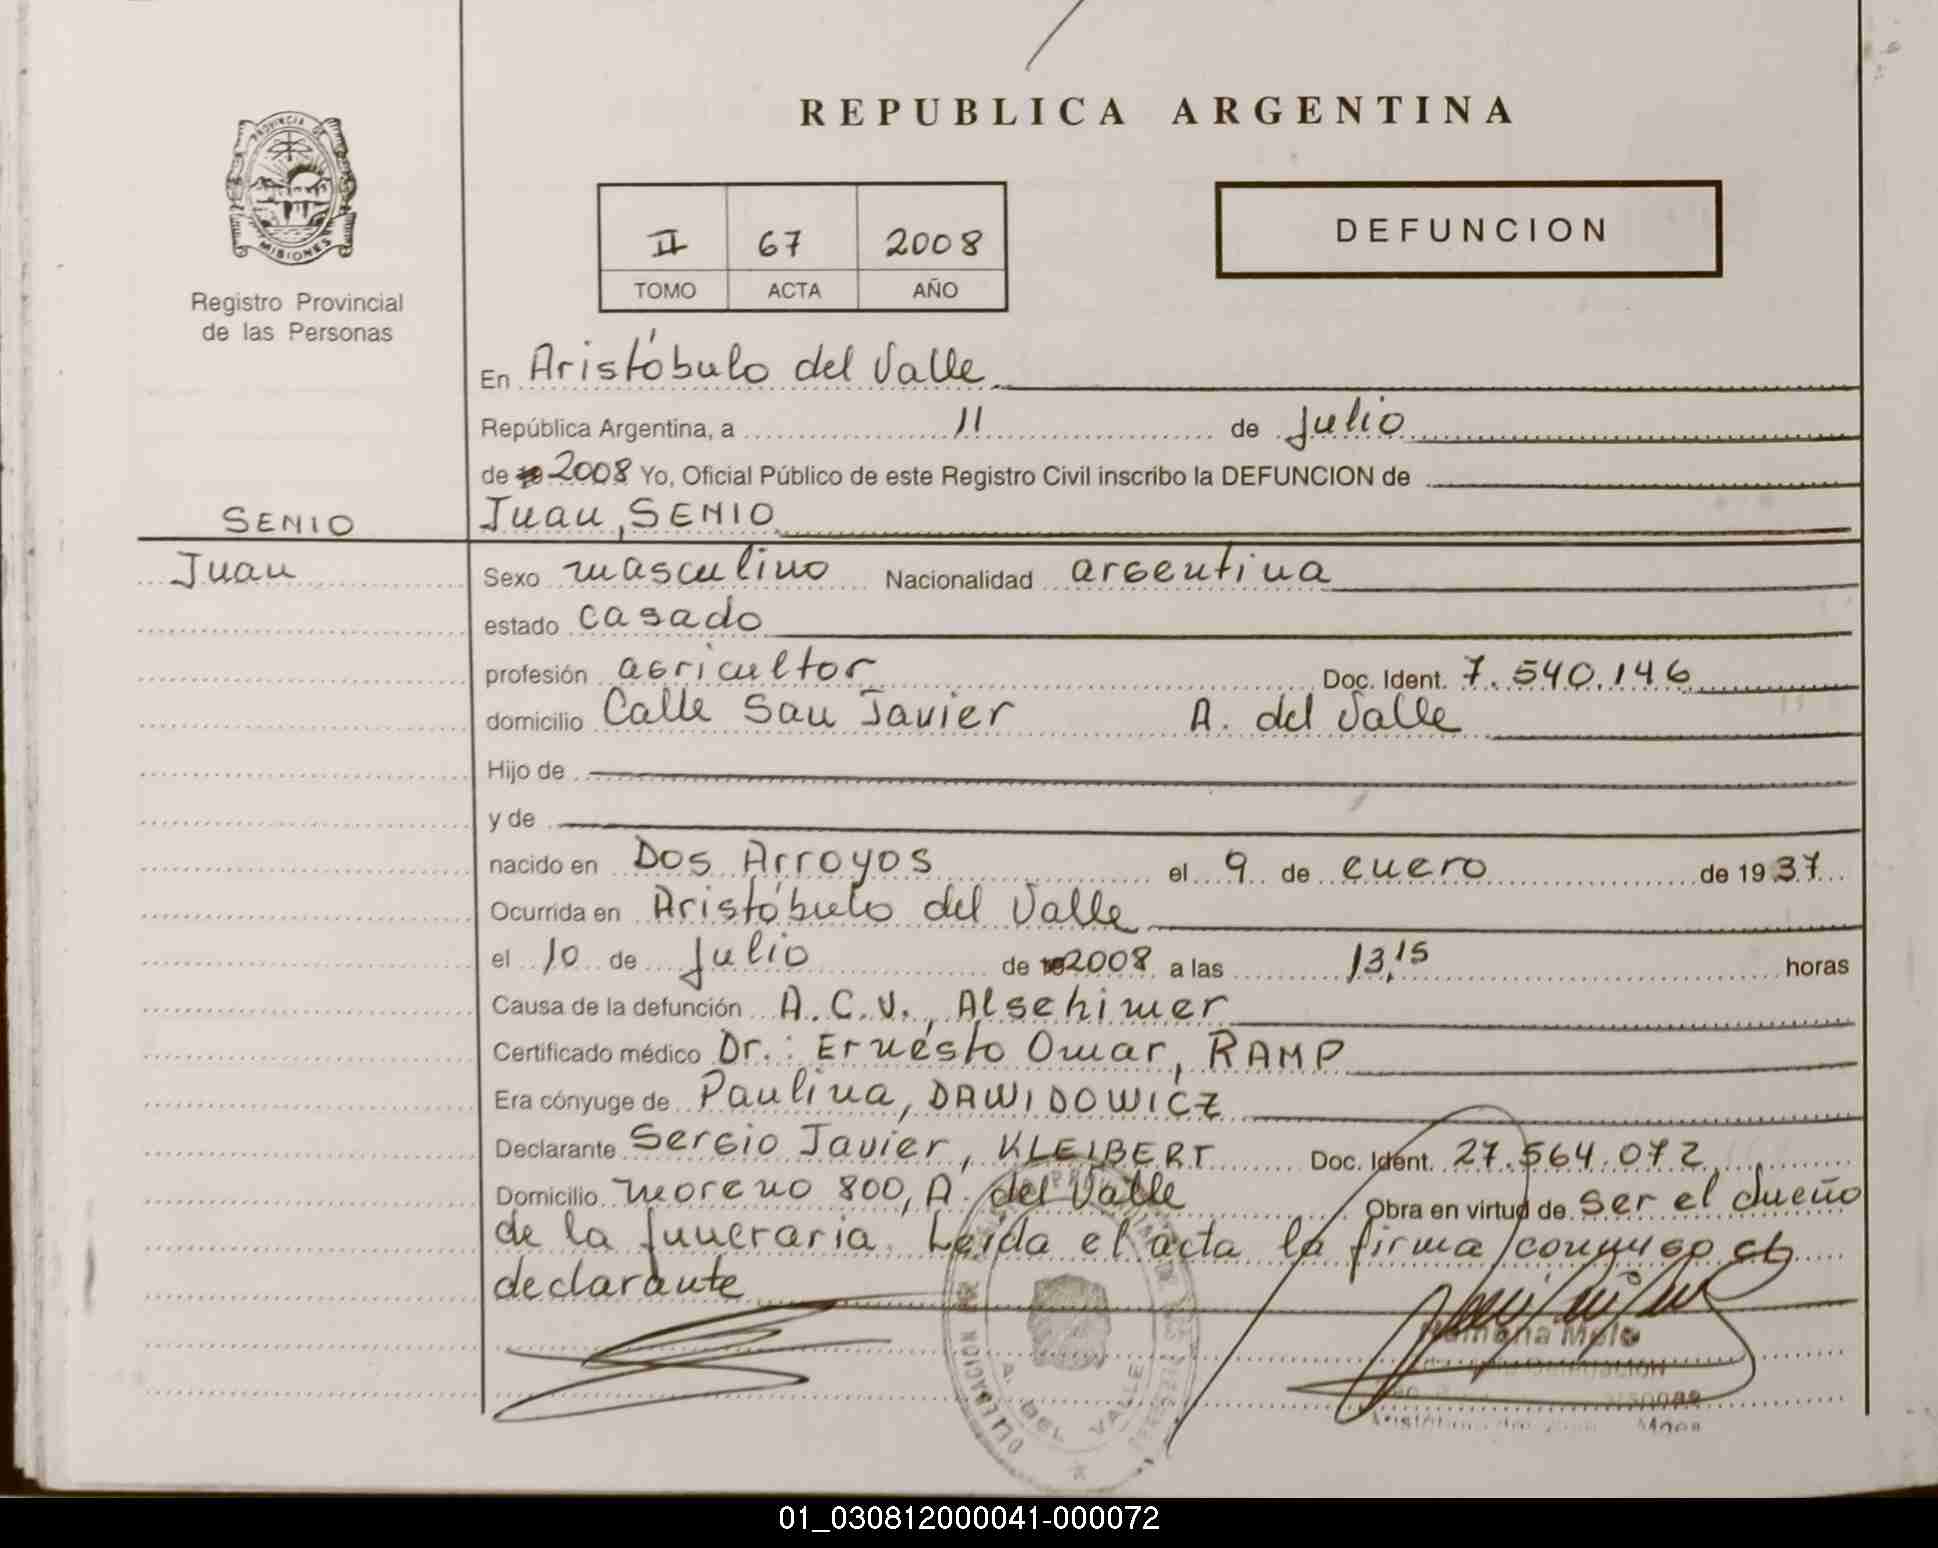 REPUBLICA ARGENTINA
PROVINCIA DE
MISIONES
Registro Provincial
de las Personas
II 67 2008
TOMO ACTA AÑO
DEFUNCION
En Aristóbulo del Valle
República Argentina, a 11 de julio
de 2008 Yo, Oficial Público de este Registro Civil inscribo la DEFUNCION de
SENIO
Juan, SENIO
Juan
Sexo masculino Nacionalidad argentina
estado casado
profesión agricultor Doc. Ident. 7.540.146
domicilio Calle San Javier A. del Valle
Hijo de
y de
nacido en Dos Arroyos el 9 de enero de 1937
Ocurrida en Aristóbulo del Valle
el 10 de julio de 2008 a las 13,15 horas
Causa de la defunción A.C.V., Alsehimer
Certificado médico Dr.: Ernesto Omar, RAMP
Era cónyuge de Paulina, DAWIDOWICZ
Declarante Sergio Javier, KLEIBERT Doc. Ident. 27.564.072
Domicilio Moreno 800, A. del Valle Obra en virtud de ser el dueño
de la funeraria. Leída el acta la firma conmigo el
declarante
A. DEL VALLE
01_030812000041-000072